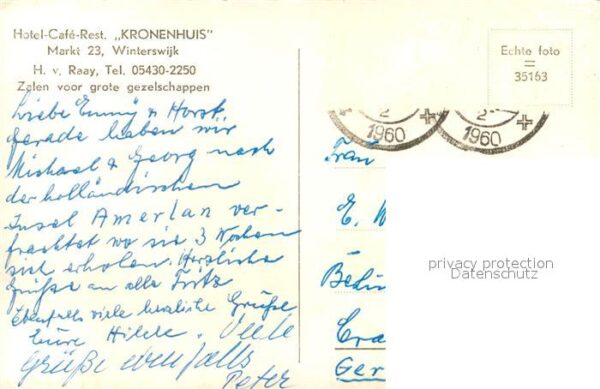 Hotel-Café-Rest. „KRONENHUIS"
Markt 23, Winterswijk
H. v. Raay, Tel. 05430-2250
Zalen voor grote gezelschappen
Liebe Emmy & Horst,
gerade haben wir
Michael & Georg nach
der holländischen
Insel Amerlan ver-
frachtet wo sie 3 Wochen
sich erholen. Herzliche
Grüße an alle Fritz
Ebenfalls viele herzliche Grüße
Eure Hilde. Viele
Grüße ebenfalls
Peter
Echte foto
=
35163
2
1960
2
1960
Frau
E. W
Berlin
Cra
Ger
privacy protection
Datenschutz